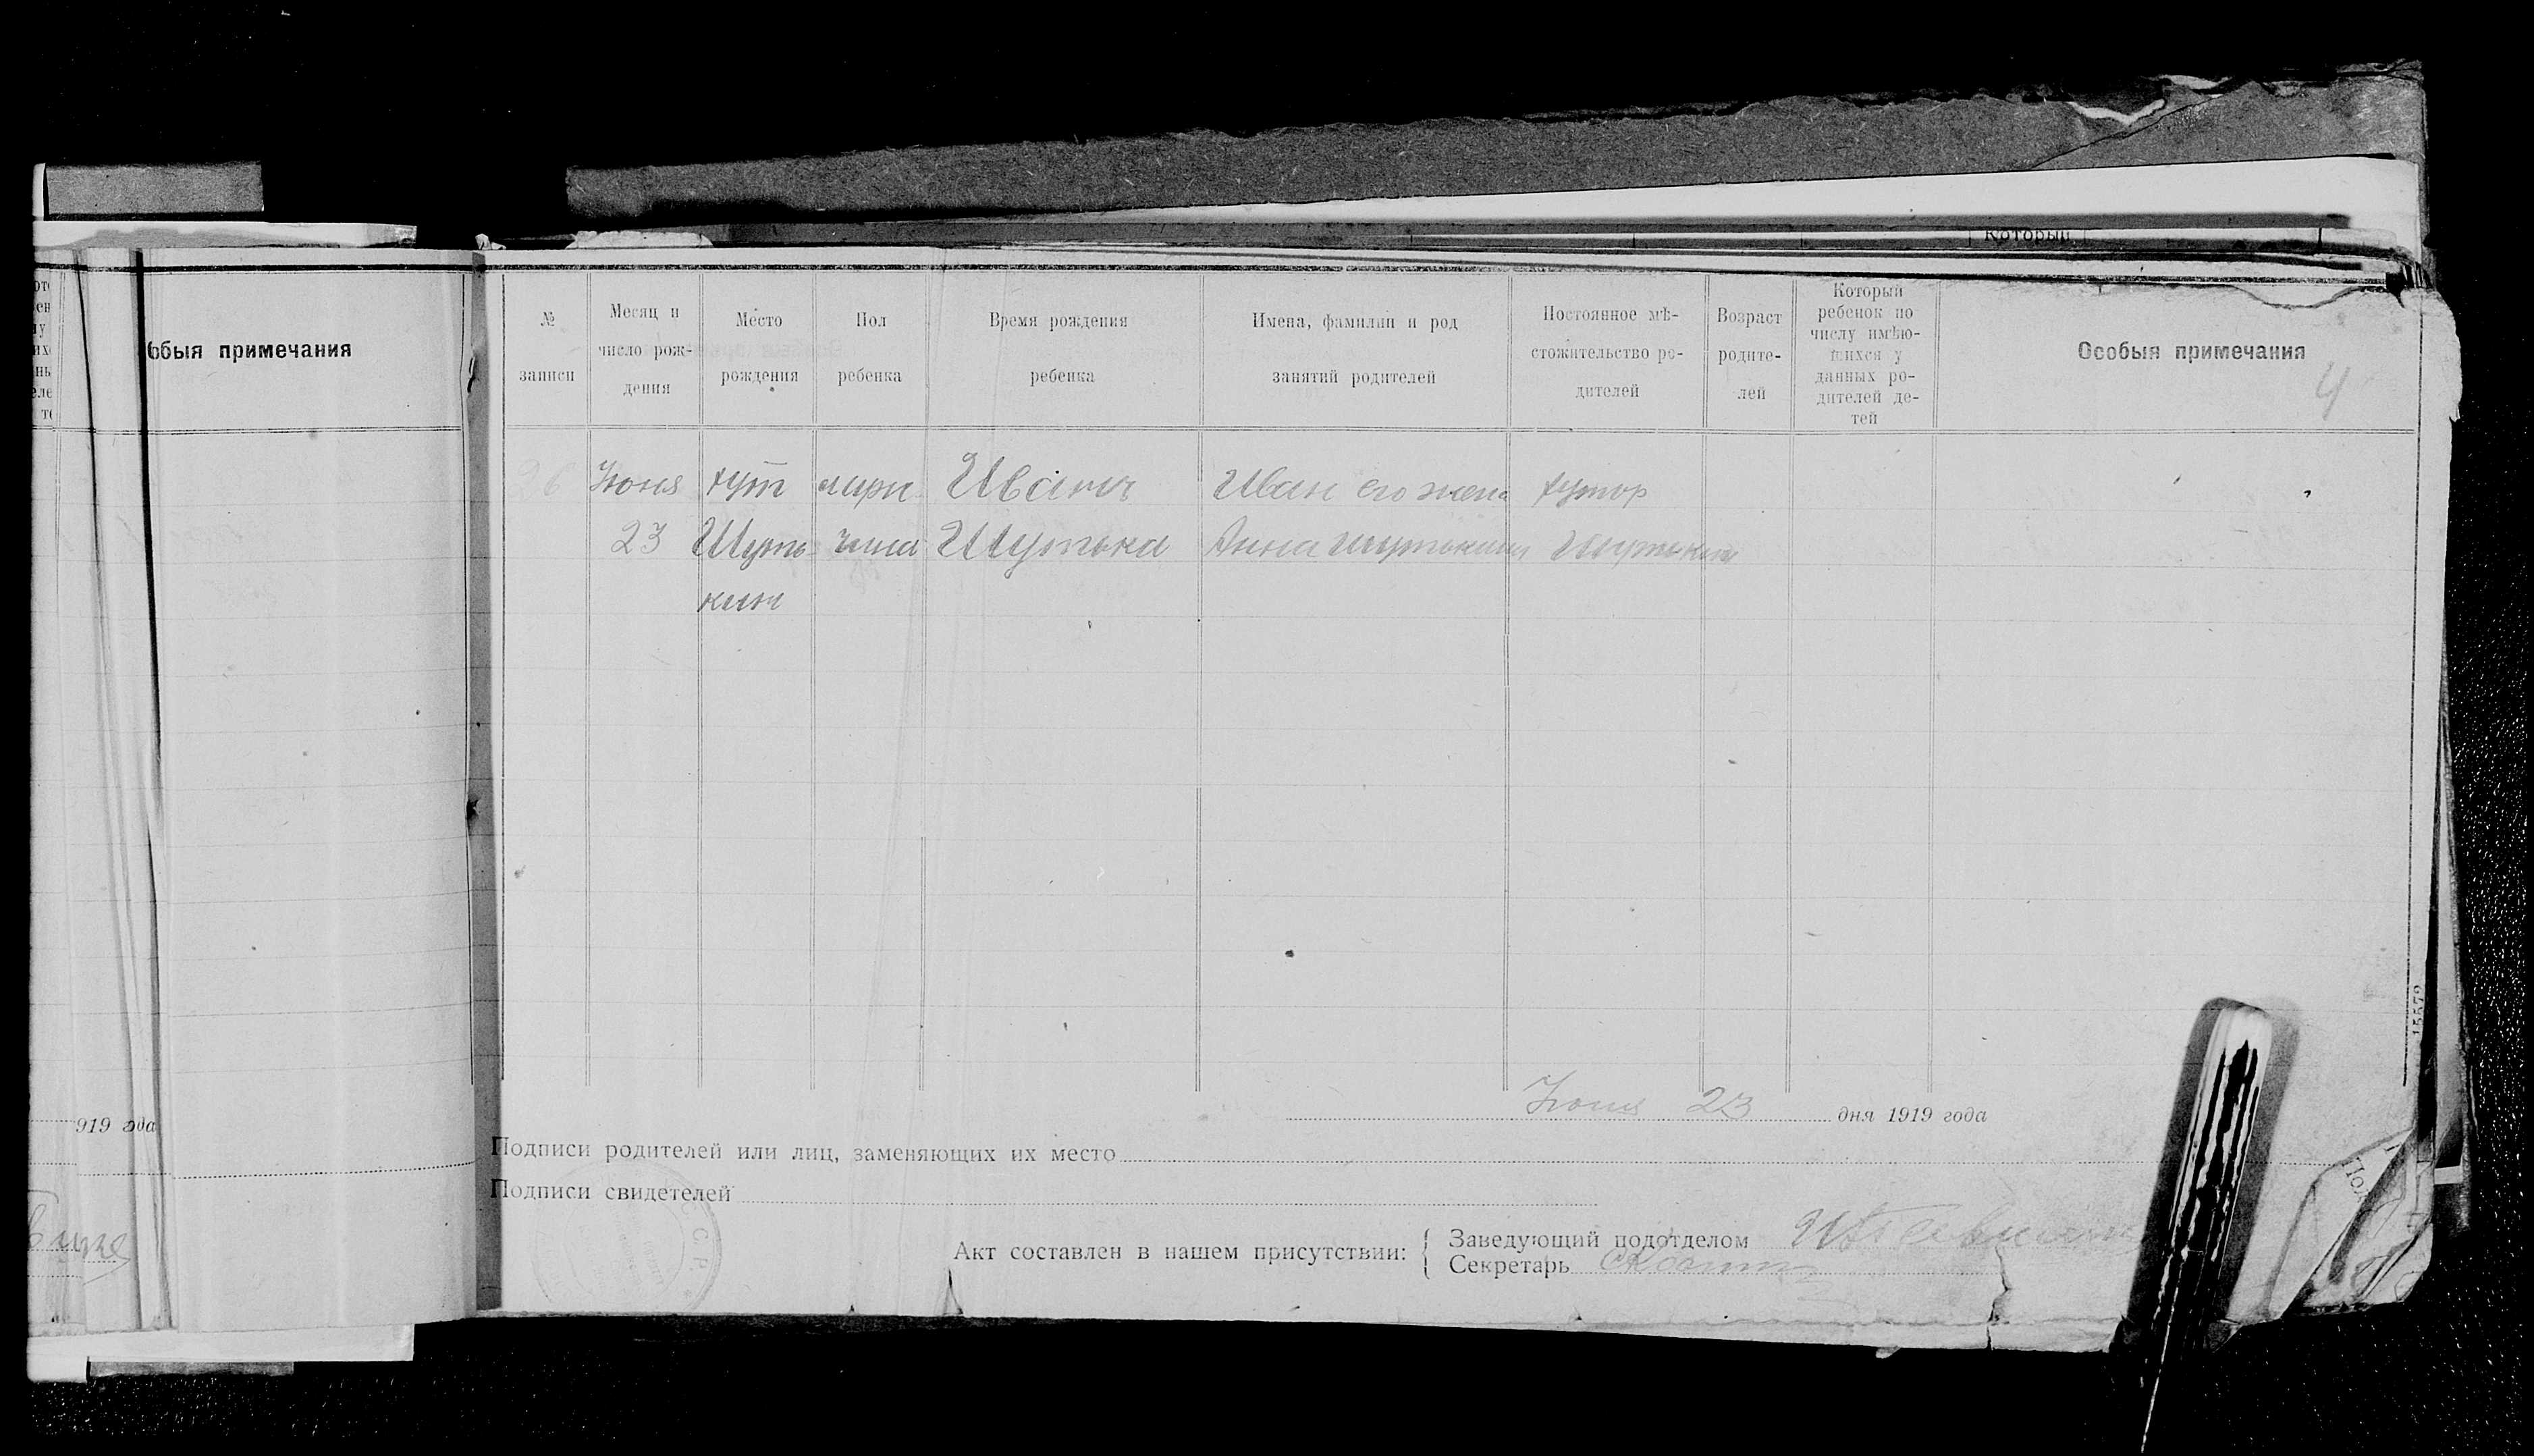 Который
обыя примечания
№ записи
Месяц и
число рож-
дения
Место
рождения
Пол
ребенка
Время рождения
ребенка
Имена, фамилии и род
занятий родителей
Постоянное мѣ-
стожительство ро-
дителей
Возраст
родите-
лей
Который
ребенок по
числу имѣю-
щихся у
данных ро-
дителей де-
тей
Особыя примечания
4
26 Июня хут Иван Иван его жена хутор
23 Шуть- Шутька Анна Шутькина Шутькин
кин
Июня 23 дня 1919 года
919 года
Подписи родителей или лиц, заменяющих их место
Подписи свидетелей
Акт составлен в нашем присутствии:
Заведующий подотделом
Секретарь
15572